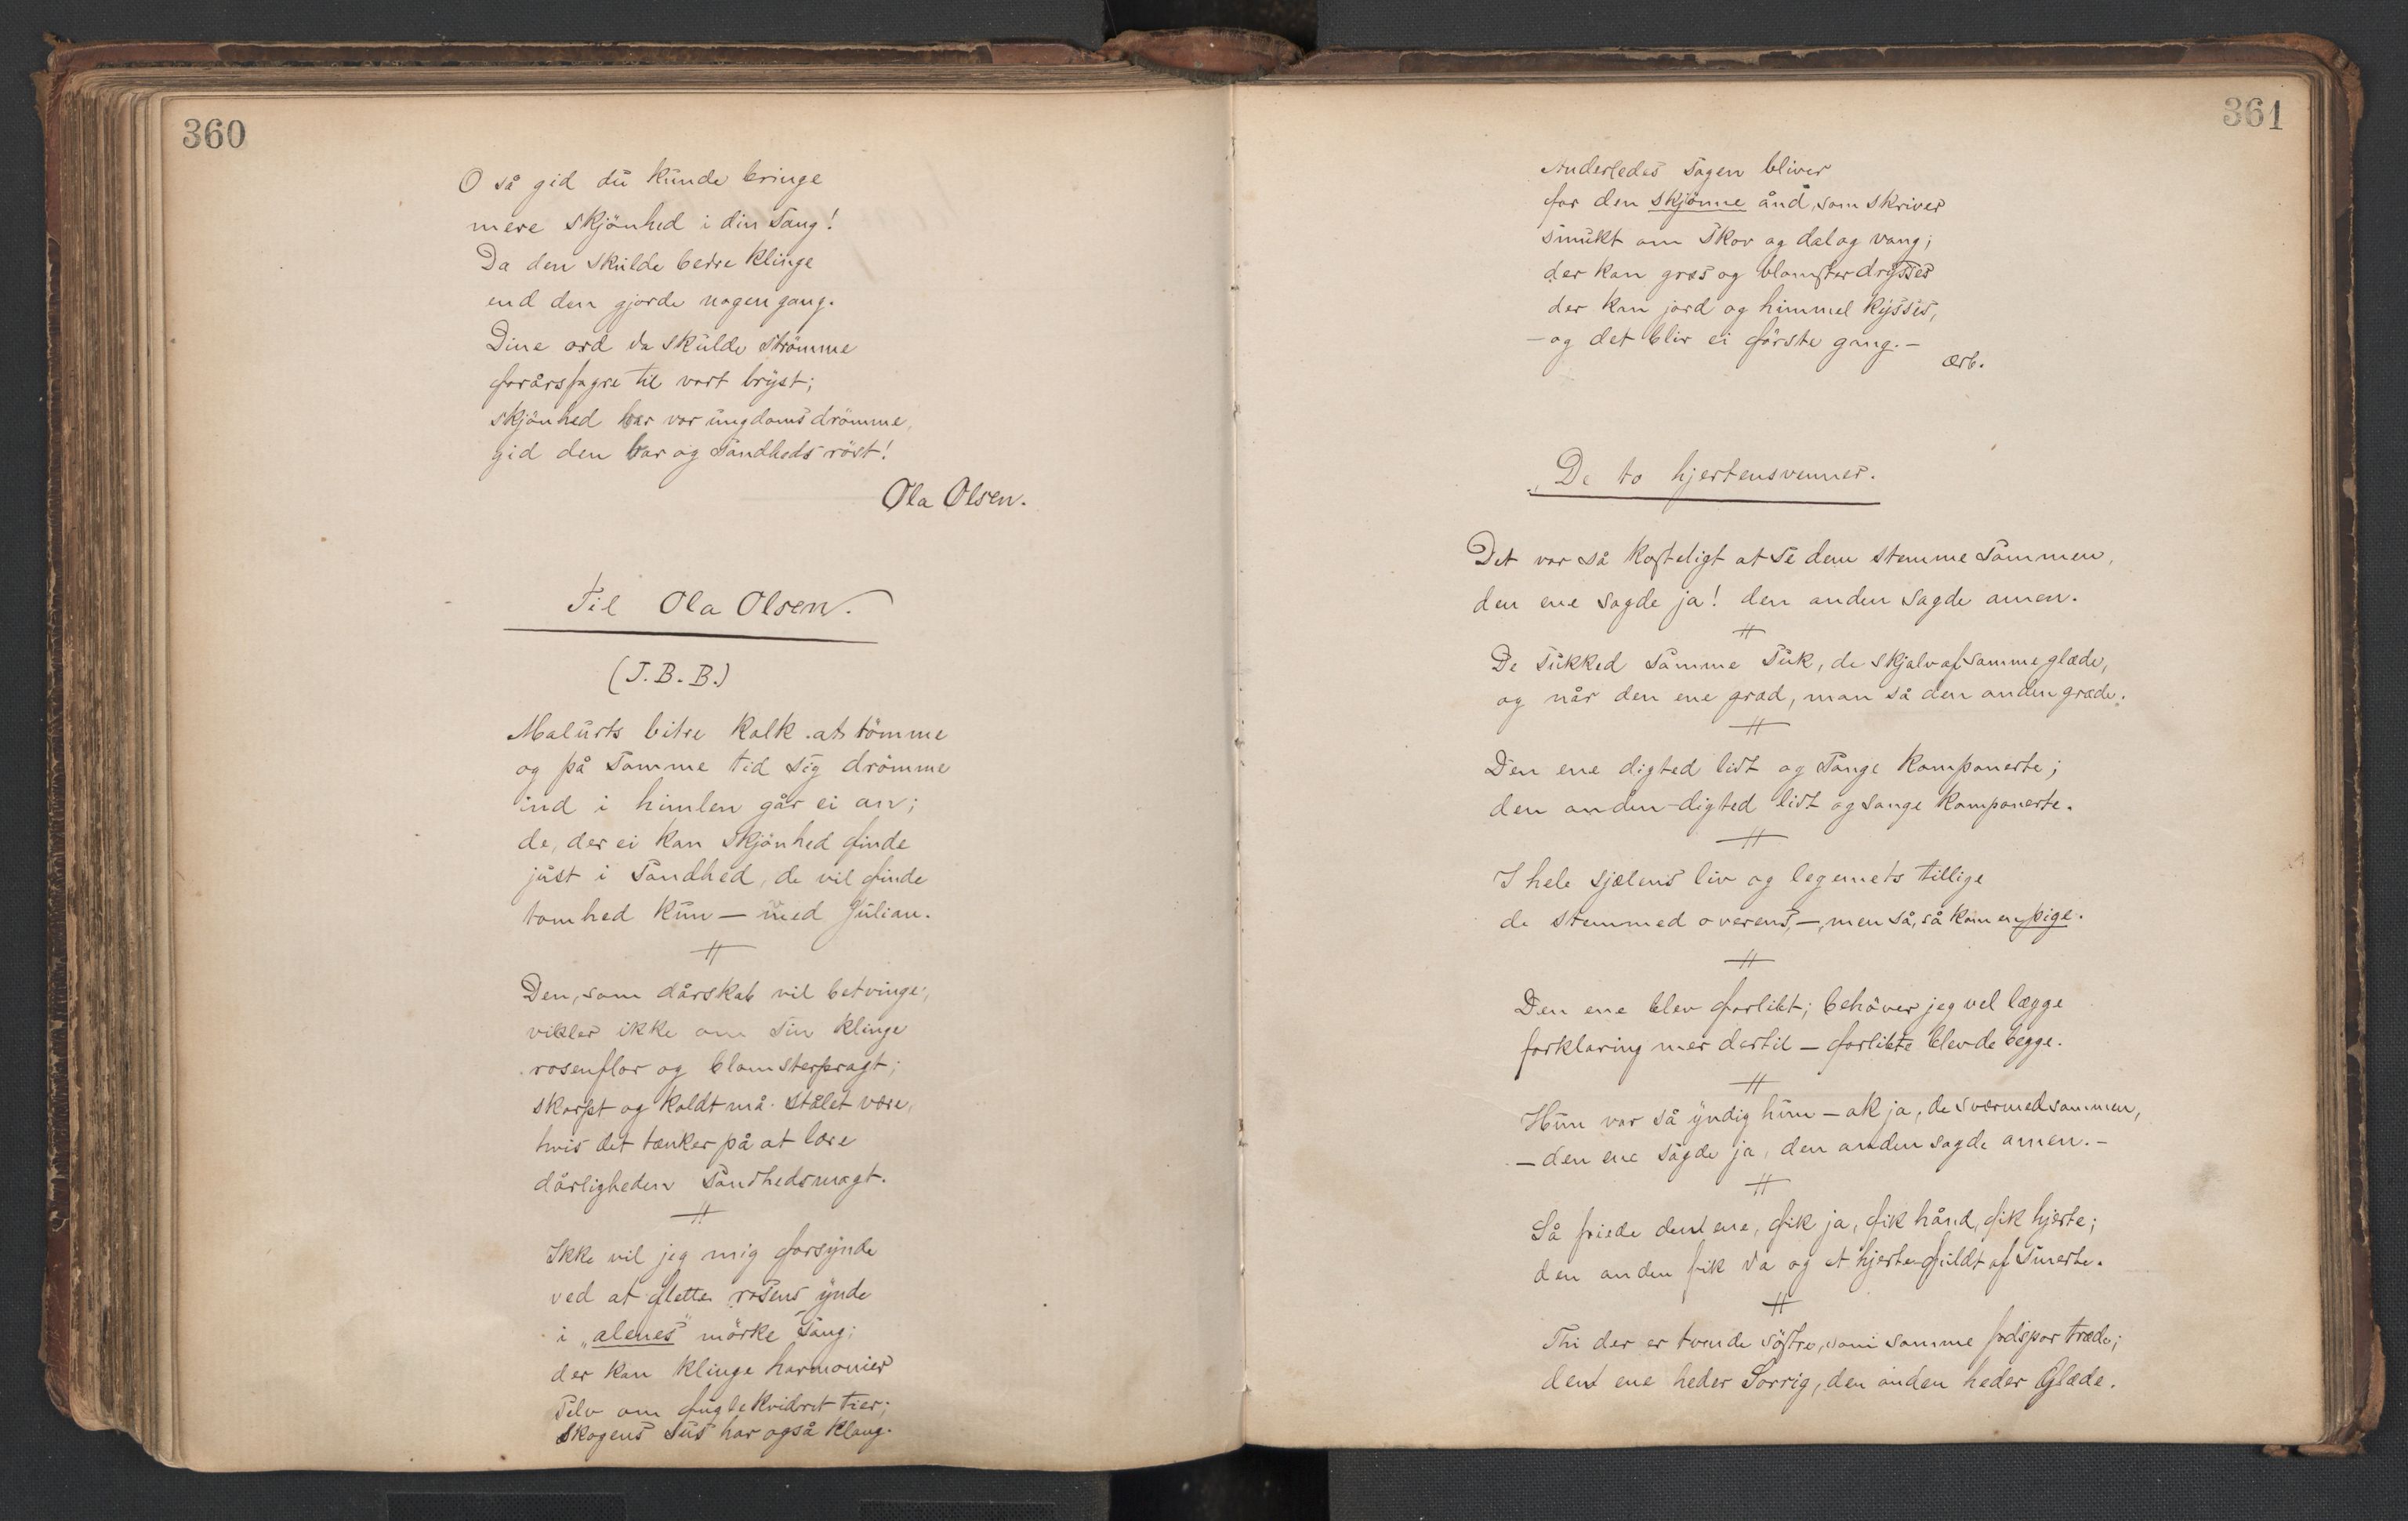 360
O så gid du kunde bringe
mere skjönhed i din sang!
Da den skulde bedre klinge
end den gjorde nogen gang.
Dine ord da skulde strömme
forårsfagre til vort bryst;
skjönhed har vor ungdoms drömme,
gid den har og sandheds röst!
Ola Olsen.
Til Ola Olsen.
(J. B. B.)
Malurts bitre kalk at tömme
og på samme tid sig drömme
ind i himlen går ei an;
de, der ei kan skjönhed finde
just i sandhed, de vil finde
tomhed kun — med Julian.
Den, som dårskab vil betvinge,
vikler ikke om sin klinge
rosenflor og blomsterpragt;
skarpt og koldt må stålet være,
hvis det tænker på at lære
dårligheden sandhedsmagt.
Ikke vil jeg mig forsynde
ved at flette rosens ynde
i „alenes" mörke sang;
der kan klinge harmonier
selv om fuglekvidret tier;
skogens sus har også klang.
361
Anderledes sagen bliver
for den skjönne ånd, som skriver
smukt om skov og dal og vang;
der kan græs og blomster drysses
der kan jord og himmel kysses,
— og det blir ei förste gang. —
Ærb.
De to hjertensvenner.
Det var så kosteligt at se dem stemme sammen,
den ene sagde ja! den anden sagde amen.
De sukked samme suk, de skjalv af samme glæde,
og når den ene græd, man så den anden græde.
Den ene digted lidt og sange komponerte;
den anden digted lidt og sange komponerte.
I hele sjælens liv og legemets tillige
de stemmed overens, —, men så, så kom en pige.
Den ene blev forlibt; behöver jeg vel lægge
forklaring mer dertil — forlibte blev de begge.
Hun var så yndig hun — ak ja, de sværmed sammen,
— den ene sagde ja, den anden sagde amen. —
Så friede den ene, fik ja, fik hånd, fik hjerte;
den anden fik da og et hjerte fuldt af smerte.
Thi der er tvende söstre, som i samme fodspor træde;
den ene heder Sorrig, den anden heder Glæde.